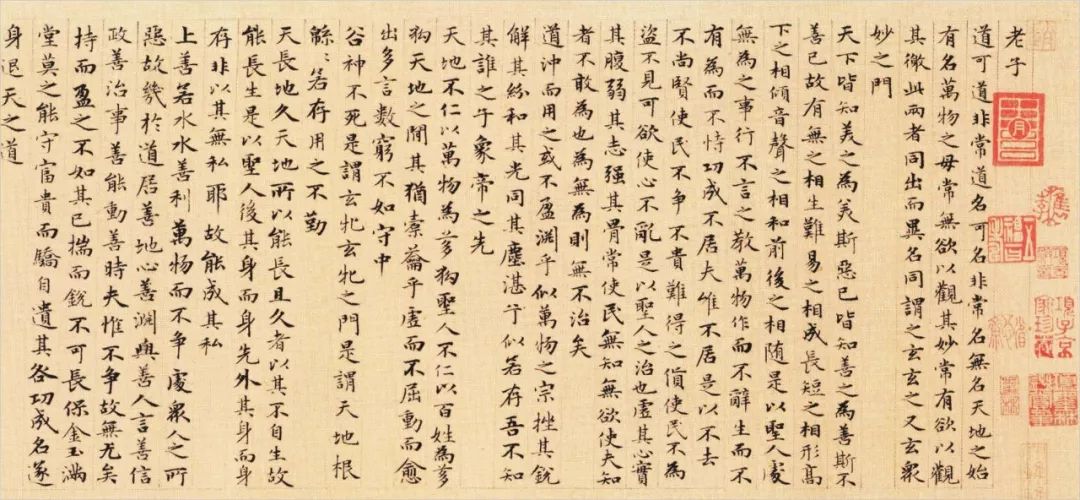 老子
道可道非常道名可名非常名無名天地之始
有名萬物之母常無欲以觀其妙常有欲以觀
其徼此兩者同出而異名同謂之玄玄之又玄衆
妙之門
天下皆知美之為美斯惡已皆知善之為善斯不
善已故有無之相生難易之相成長短之相形高
下之相傾音聲之相和前後之相随是以聖人處
無為之事行不言之教萬物作而不辭生而不
有為而不恃功成不居夫惟不居是以不去
不尚賢使民不争不貴難得之貨使民不為
盗不見可欲使心不亂是以聖人之治也虚其心實
其腹弱其志强其骨常使民無知無欲使夫知
者不敢為也為無為則無不治矣
道沖而用之或不盈淵乎似萬物之宗挫其銳
解其紛和其光同其塵湛乎似若存吾不知
其誰之子象帝之先
天地不仁以萬物為芻狗聖人不仁以百姓為芻
狗天地之間其猶橐籥乎虚而不屈動而愈
出多言數窮不如守中
谷神不死是謂玄牝玄牝之門是謂天地根
緜〻若存用之不勤
天長地久天地所以能長且久者以其不自生故
能長生是以聖人後其身而身先外其身而身
存非以其無私耶故能成其私
上善若水水善利萬物而不争處衆人之所
惡故幾於道居善地心善淵與善人言善信
政善治事善能動善時夫惟不争故無尤矣
持而盈之不如其已揣而銳不可長保金玉滿
堂莫之能守富貴而驕自遺其咎功成名遂
身退天之道